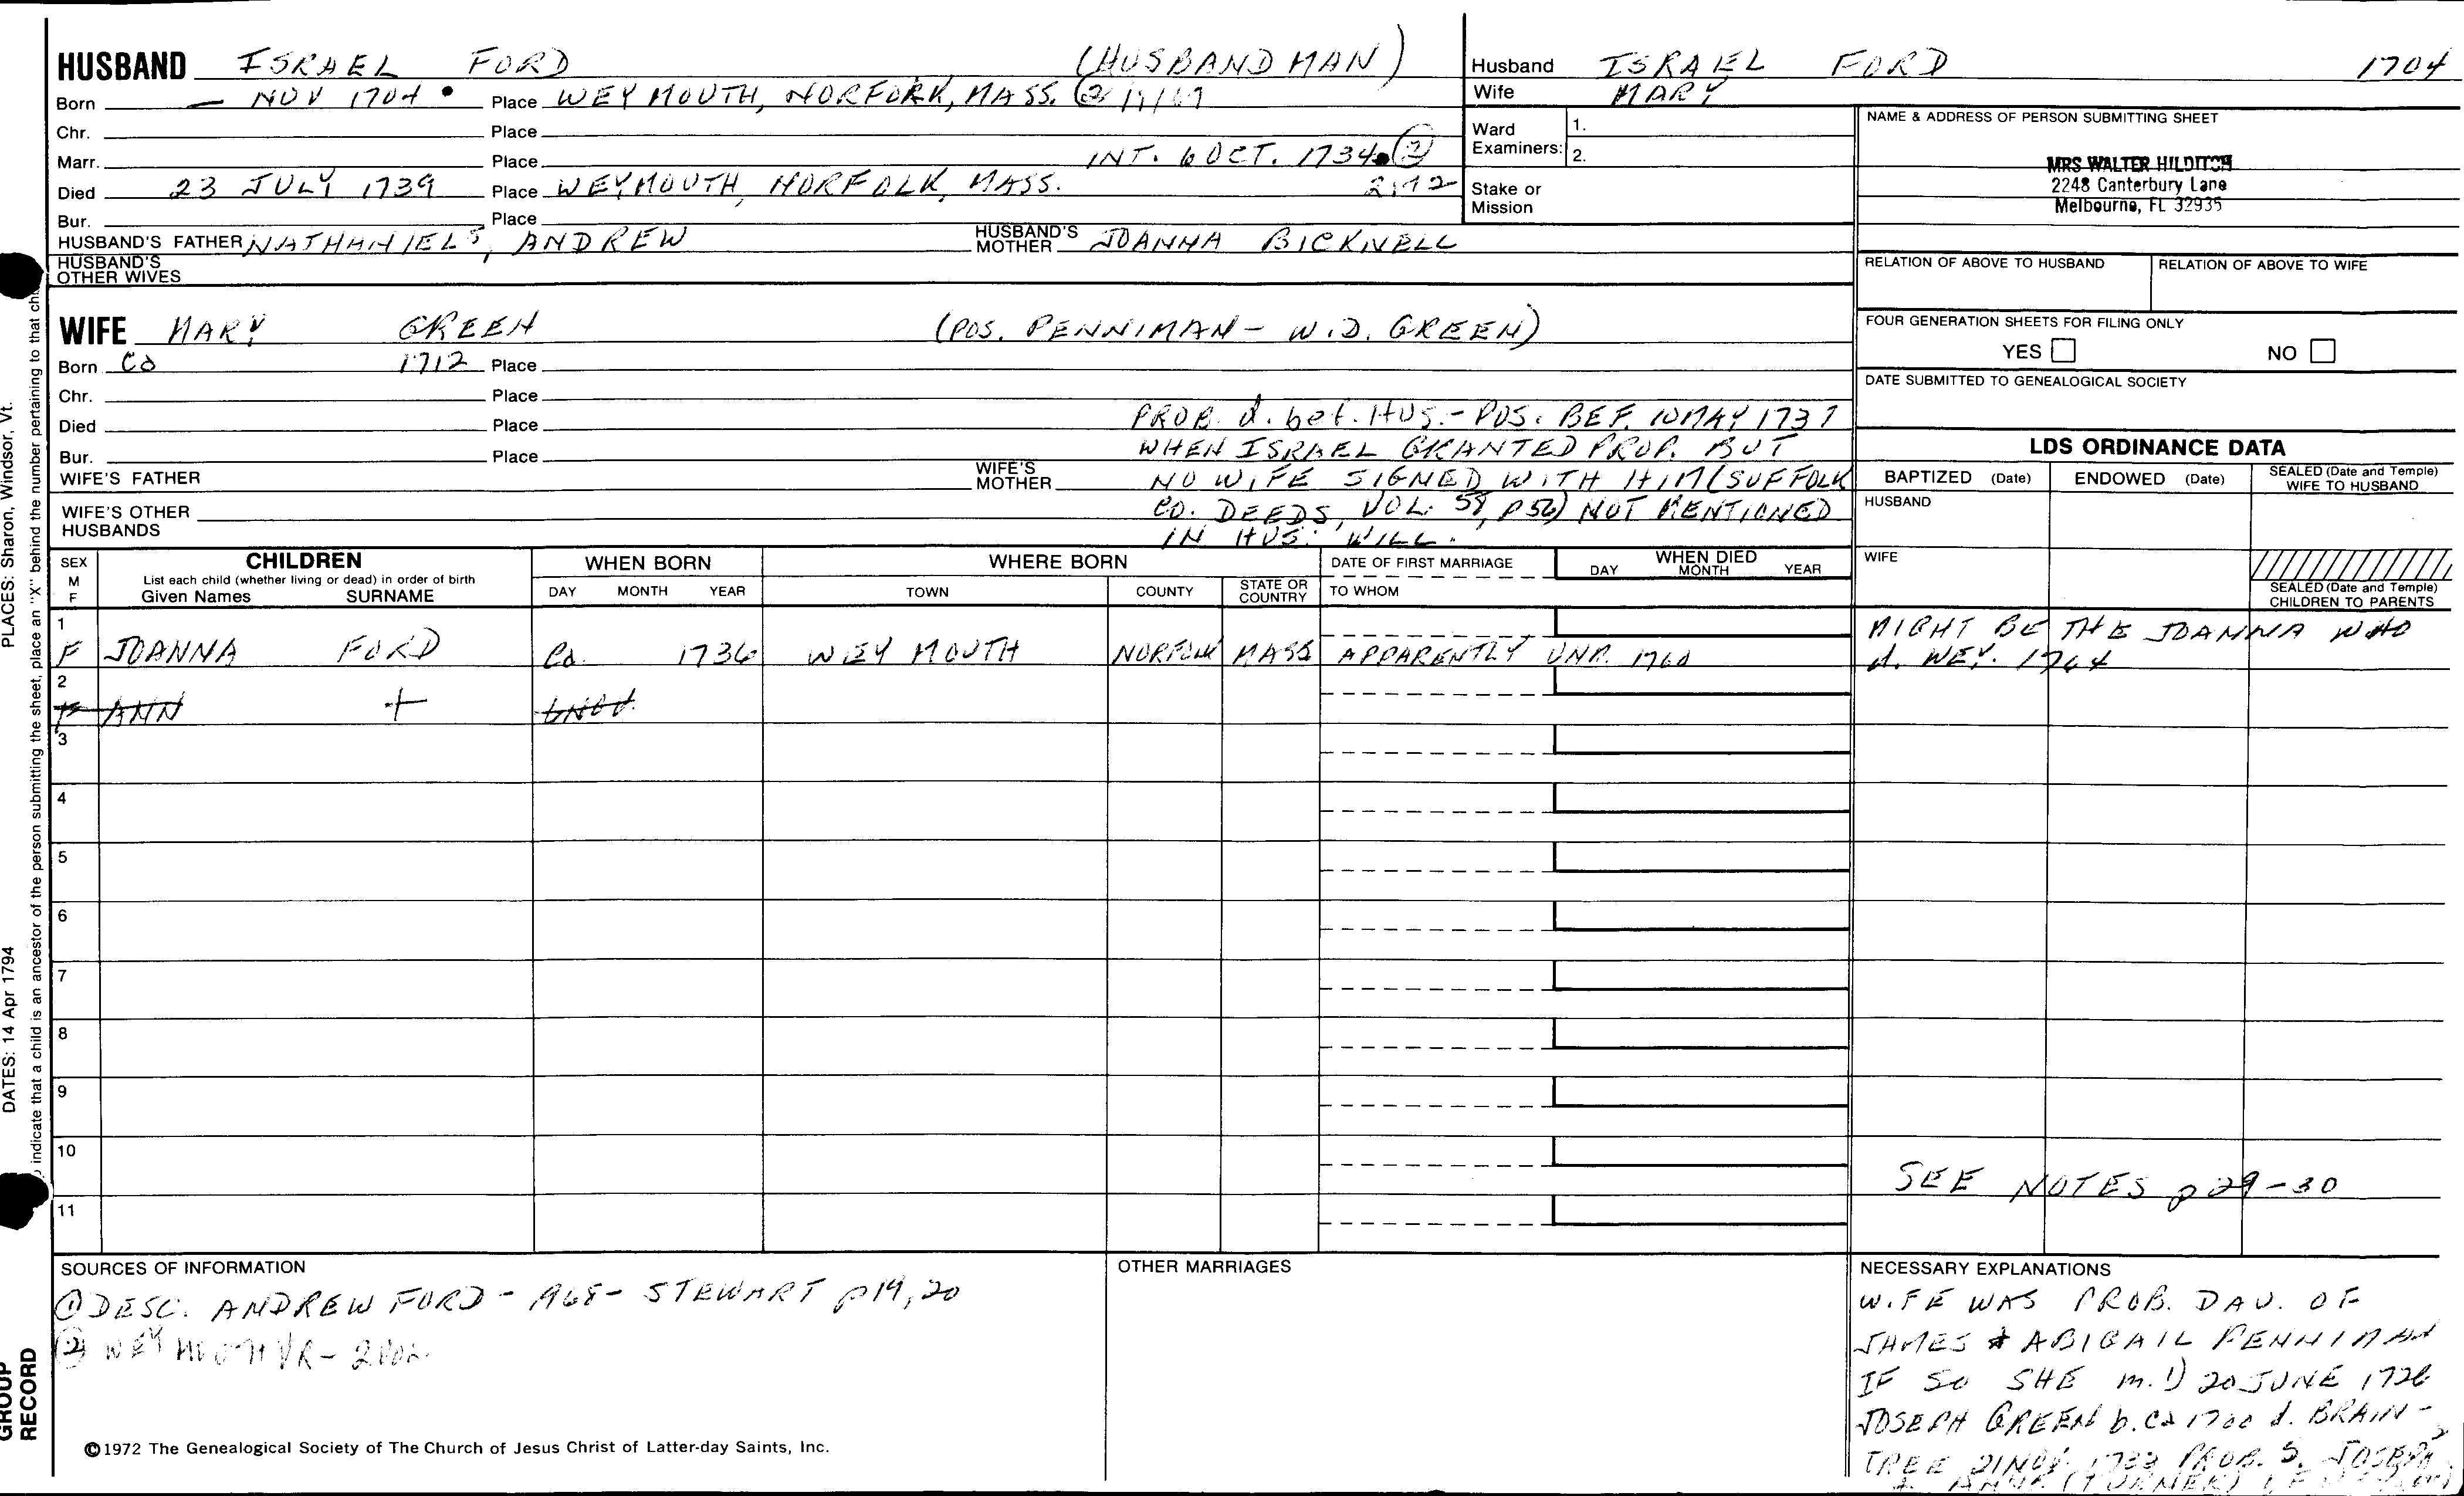 HUSBAND ISRAEL FORD (HUSBANDMAN)
Born — NOV 1704 • Place WEYMOUTH, NORFORK, MASS. ②
Chr. Place
Marr. Place INT. 6 OCT. 1734 • ②
Died 23 JULY 1739 Place WEYMOUTH, NORFOLK, MASS.
Bur. Place
HUSBAND'S FATHER NATHANIEL, ANDREW HUSBAND'S MOTHER JOANNA BICKNELL
HUSBAND'S OTHER WIVES
Husband ISRAEL FORD 1704
Wife MARY
Ward Examiners: 1.
2.
Stake or Mission
NAME & ADDRESS OF PERSON SUBMITTING SHEET
MRS WALTER HILDITCH
2248 Canterbury Lane
Melbourne, FL 32935
RELATION OF ABOVE TO HUSBAND RELATION OF ABOVE TO WIFE
FOUR GENERATION SHEETS FOR FILING ONLY
YES NO
DATE SUBMITTED TO GENEALOGICAL SOCIETY
WIFE MARY GREEN (POS. PENNIMAN - W.D. GREEN)
Born Ca 1712 Place
Chr. Place
Died Place
Bur. Place
WIFE'S FATHER WIFE'S MOTHER
WIFE'S OTHER HUSBANDS
PROB. d. bef. HUS. - POS. BEF. 10 MAY 1737
WHEN ISRAEL GRANTED PROP. BUT
NO WIFE SIGNED WITH HIM (SUFFOLK
CO. DEEDS, VOL. 58, p 56) NOT MENTIONED
IN HUS. WILL.
LDS ORDINANCE DATA
BAPTIZED (Date) ENDOWED (Date) SEALED (Date and Temple) WIFE TO HUSBAND
HUSBAND
WIFE
SEALED (Date and Temple) CHILDREN TO PARENTS
SEX M F
CHILDREN
List each child (whether living or dead) in order of birth
Given Names SURNAME
WHEN BORN
DAY MONTH YEAR
WHERE BORN
TOWN COUNTY STATE OR COUNTRY
DATE OF FIRST MARRIAGE
TO WHOM
WHEN DIED
DAY MONTH YEAR
1
F JOANNA FORD Ca. 1736 WEYMOUTH NORFOLK MASS APPARENTLY UNM. 1760
MIGHT BE THE JOANNA WHO
d. WEY. 1764
2
F ANN +
3
4
5
6
7
8
9
10
11
SEE NOTES p 29-30
SOURCES OF INFORMATION
① DESC. ANDREW FORD - 1968 - STEWART p 19, 20
② WEYMOUTH VR -
OTHER MARRIAGES
NECESSARY EXPLANATIONS
WIFE WAS PROB. DAU. OF
JAMES & ABIGAIL PENNIMAN
IF SO SHE m. 1) 20 JUNE 1726
JOSEPH GREEN b. ca 1700 d. BRAIN-
TREE 21 NOV. 1733 PROB. S. JOSEPH
& ANNA (TURNER)
©1972 The Genealogical Society of The Church of Jesus Christ of Latter-day Saints, Inc.
PLACES: Sharon, Windsor, Vt.
DATES: 14 Apr 1794
indicate that a child is an ancestor of the person submitting the sheet, place an "X" behind the number pertaining to that
GROUP
RECORD